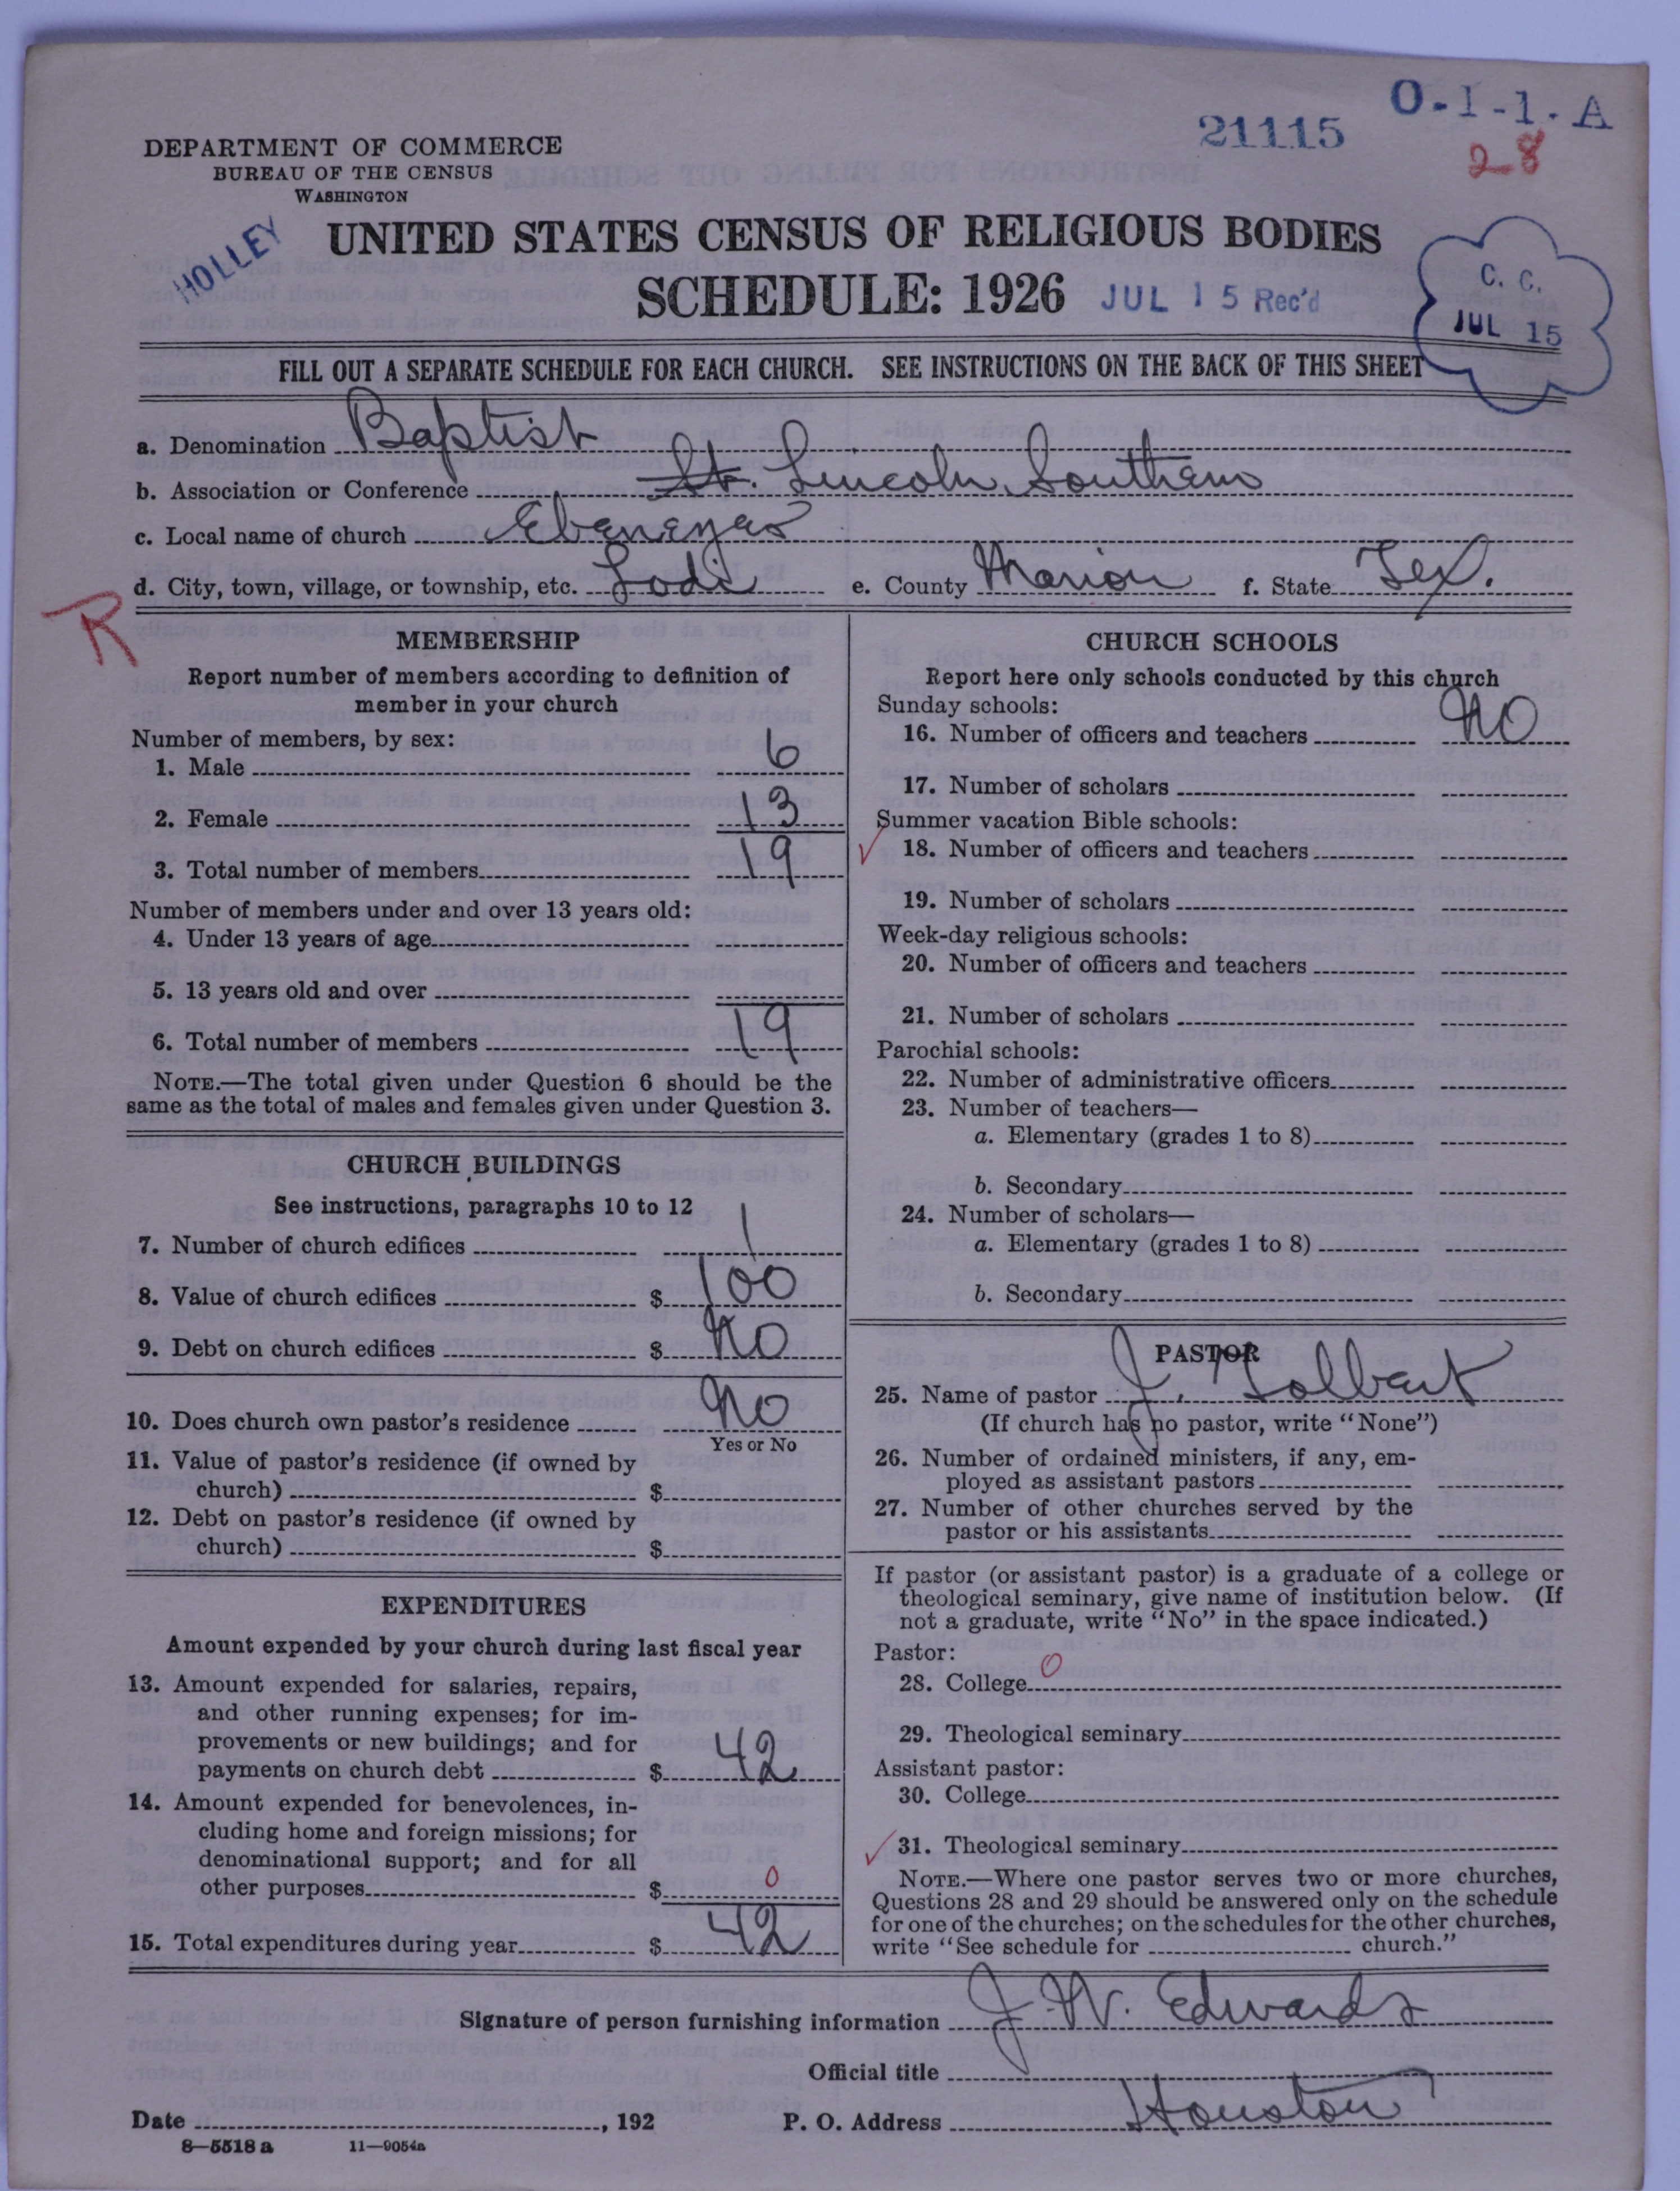 O-1-1-A
21115
28
DEPARTMENT OF COMMERCE
BUREAU OF THE CENSUS
WASHINGTON
HOLLEY
UNITED STATES CENSUS OF RELIGIOUS BODIES
SCHEDULE: 1926
JUL 15 Rec'd
C. C.
JUL 15
FILL OUT A SEPARATE SCHEDULE FOR EACH CHURCH. SEE INSTRUCTIONS ON THE BACK OF THIS SHEET
a. Denomination Baptist
b. Association or Conference St. Lincoln Southern
c. Local name of church Ebenezar
d. City, town, village, or township, etc. Lodi e. County Marion f. State Tex.
R
MEMBERSHIP
Report number of members according to definition of
member in your church
Number of members, by sex:
1. Male 6
2. Female 13
3. Total number of members 19
Number of members under and over 13 years old:
4. Under 13 years of age
5. 13 years old and over
6. Total number of members 19
NOTE.—The total given under Question 6 should be the
same as the total of males and females given under Question 3.
CHURCH BUILDINGS
See instructions, paragraphs 10 to 12
7. Number of church edifices 1
8. Value of church edifices $ 100
9. Debt on church edifices $ No
10. Does church own pastor's residence No
Yes or No
11. Value of pastor's residence (if owned by
church) $
12. Debt on pastor's residence (if owned by
church) $
EXPENDITURES
Amount expended by your church during last fiscal year
13. Amount expended for salaries, repairs,
and other running expenses; for im-
provements or new buildings; and for
payments on church debt $ 42
14. Amount expended for benevolences, in-
cluding home and foreign missions; for
denominational support; and for all
other purposes $ 0
15. Total expenditures during year $ 42
CHURCH SCHOOLS
Report here only schools conducted by this church
Sunday schools:
16. Number of officers and teachers No
17. Number of scholars
Summer vacation Bible schools:
18. Number of officers and teachers
19. Number of scholars
Week-day religious schools:
20. Number of officers and teachers
21. Number of scholars
Parochial schools:
22. Number of administrative officers
23. Number of teachers—
a. Elementary (grades 1 to 8)
b. Secondary
24. Number of scholars—
a. Elementary (grades 1 to 8)
b. Secondary
PASTOR
25. Name of pastor J. Holbert
(If church has no pastor, write "None")
26. Number of ordained ministers, if any, em-
ployed as assistant pastors
27. Number of other churches served by the
pastor or his assistants
If pastor (or assistant pastor) is a graduate of a college or
theological seminary, give name of institution below. (If
not a graduate, write "No" in the space indicated.)
Pastor:
28. College 0
29. Theological seminary
Assistant pastor:
30. College
31. Theological seminary
NOTE.—Where one pastor serves two or more churches,
Questions 28 and 29 should be answered only on the schedule
for one of the churches; on the schedules for the other churches,
write "See schedule for church."
Signature of person furnishing information J. W. Edwards
Official title
Date , 192 P. O. Address Houston
8—5518 a 11—9054a